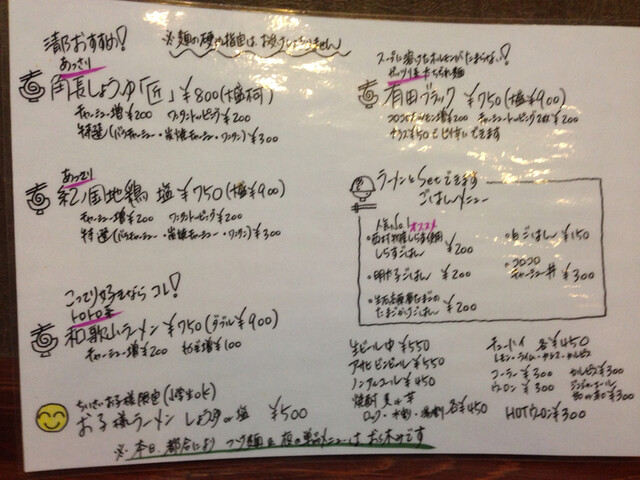 清乃おすすめ!
※麺の硬め指定はお受けしておりません
あっさり
角長しょうゆ「匠」 ¥800(
チャーシュー増¥200 ワンタントッピング ¥200
特選(バラチャーシュー・炭焼チャーシュー・ワンタン) ¥300
あっさり
紀ノ国地鶏 塩 ¥750(塩¥900)
チャーシュー増¥200 ワンタントッピング ¥200
特選(バラチャーシュー・炭焼チャーシュー・ワンタン) ¥300
こってり好きなら コレ!
トロトロ系
和歌山ラーメン ¥750(ダブル¥900)
チャーシュー増 ¥200 ¥100
ちいさいお子様限定(小学生OK)
お子様ラーメン しょうゆor塩 ¥500
※本日、都合により つけ麺と夜の単品メニューは お休みです
スープに溶けたホルモンがたまらない!
有田ブラック ¥750(
¥200 チャーシュートッピング ¥200
ラーメンとSetできます
ごはんメニュー
人気No.1 オススメ
しらすごはん ¥200
・明太子ごはん ¥200
たまごかけごはん ¥200
・白ごはん ¥150
・コロコロ
チャーシュー丼 ¥300
生ビール 中 ¥550
アサヒビンビール ¥550
ノンアルコール ¥450
焼酎 麦・芋
ロック・水割・湯割 各¥450
チューハイ 各¥450
レモン・ライム・
コーラー ¥300 カルピス ¥300
ウーロン ¥300 ジンジャーエール
¥300
HOTウーロン ¥300